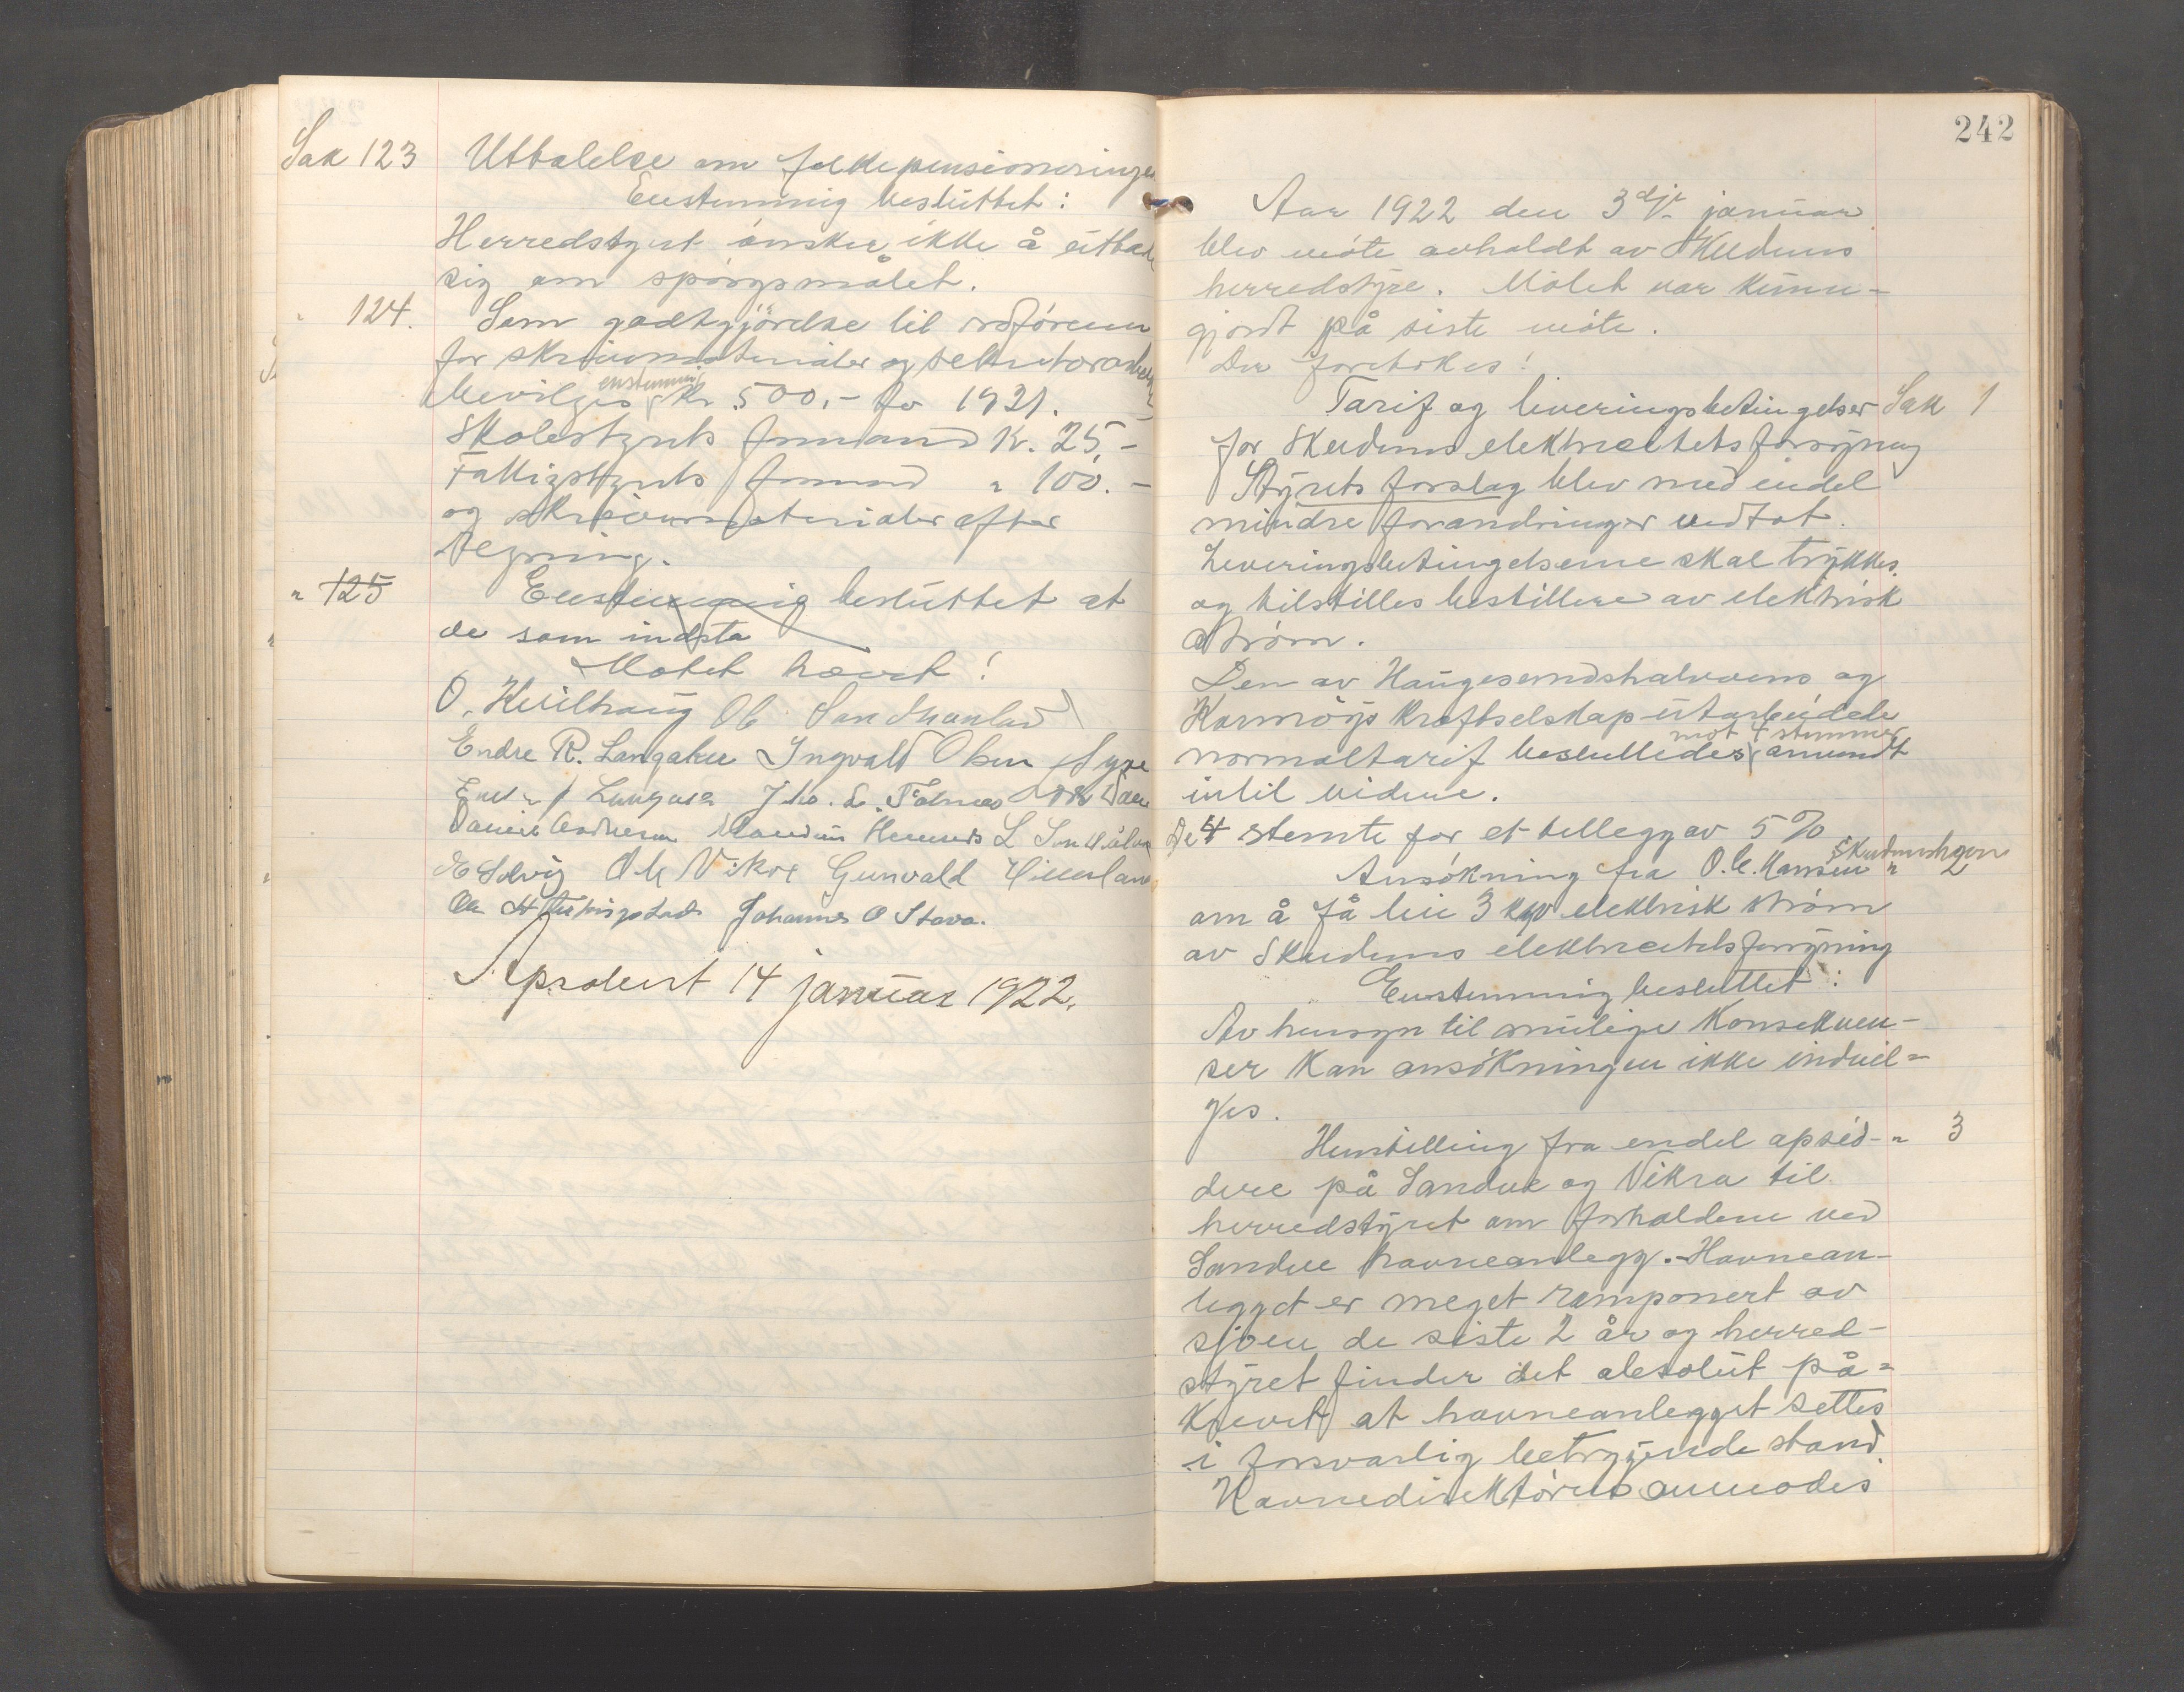 Sak 123 Uttalelse om folkepensioneringen
Enstemmig besluttet:
Herredstyret ønsker ikke å uttale
sig om spørgsmålet.
" 124. Som godtgjörelse til ordføreren
for skrivematerialer og sekretærarbeide
bevilges enstemmig kr 500,- for 1921.
Skolestyrets formand Kr. 25,-
Fattigstyrets formand " 100.-
og skrivematerialer efter
regning.
" 125 Enstemmig besluttet at
de som indsta
Møtet hævet!
O. Kvilhaug Ol Sandhanland
Endre R. Langaker Ingvald Olsen Syre
Langaker Joh. L. Falnes
Daniel Andersen Hemnes L
E Solvig O M Vikre Gunvald Hillesland
Johannes O Stava.
Aprobert 14 januar 1922.
242
Aar 1922 den 3dje januar
blev møte avholdt av Skudenes
herredstyre. Møtet var kunn-
gjort på siste møte.
Der foretokes:
Tarif og leveringsbetingelser Sak 1
for Skudenes elektricitetsforsyning
Styrets forslag blev med endel
mindre forandringer vedtat.
Leveringsbetingelserne skal trykkes
og tilstilles bestillere av elektrisk
strøm.
Den av Haugesundshalvøens og
Karmøys kraftselskap utarbeidede
mot 4 stemmer
normaltarif besluttedes anvendt
intil videre.
De 4 stemte for et tillegg av 5 %
Skudeneshavn
Ansøkning fra O. C. Hansen " 2
om å få leie 3 kw elektrisk strøm
av Skudenes elektricitetsforsyning
Enstemmig besluttet:
Av hensyn til mulige konsekven-
ser kan ansøkningen ikke indvil=
ges.
Henstilling fra endel opsid- " 3
dere på Sandve og Vikra til
herredstyret om forholdene ved
Sandve havneanlegg. - Havnean-
legget er meget ramponert av
sjøen de siste 2 år og herred-
styret finder det absolut på=
krevet at havneanlegget settes
i forsvarlig betryggende stand.
Havnedirektøren anmodes